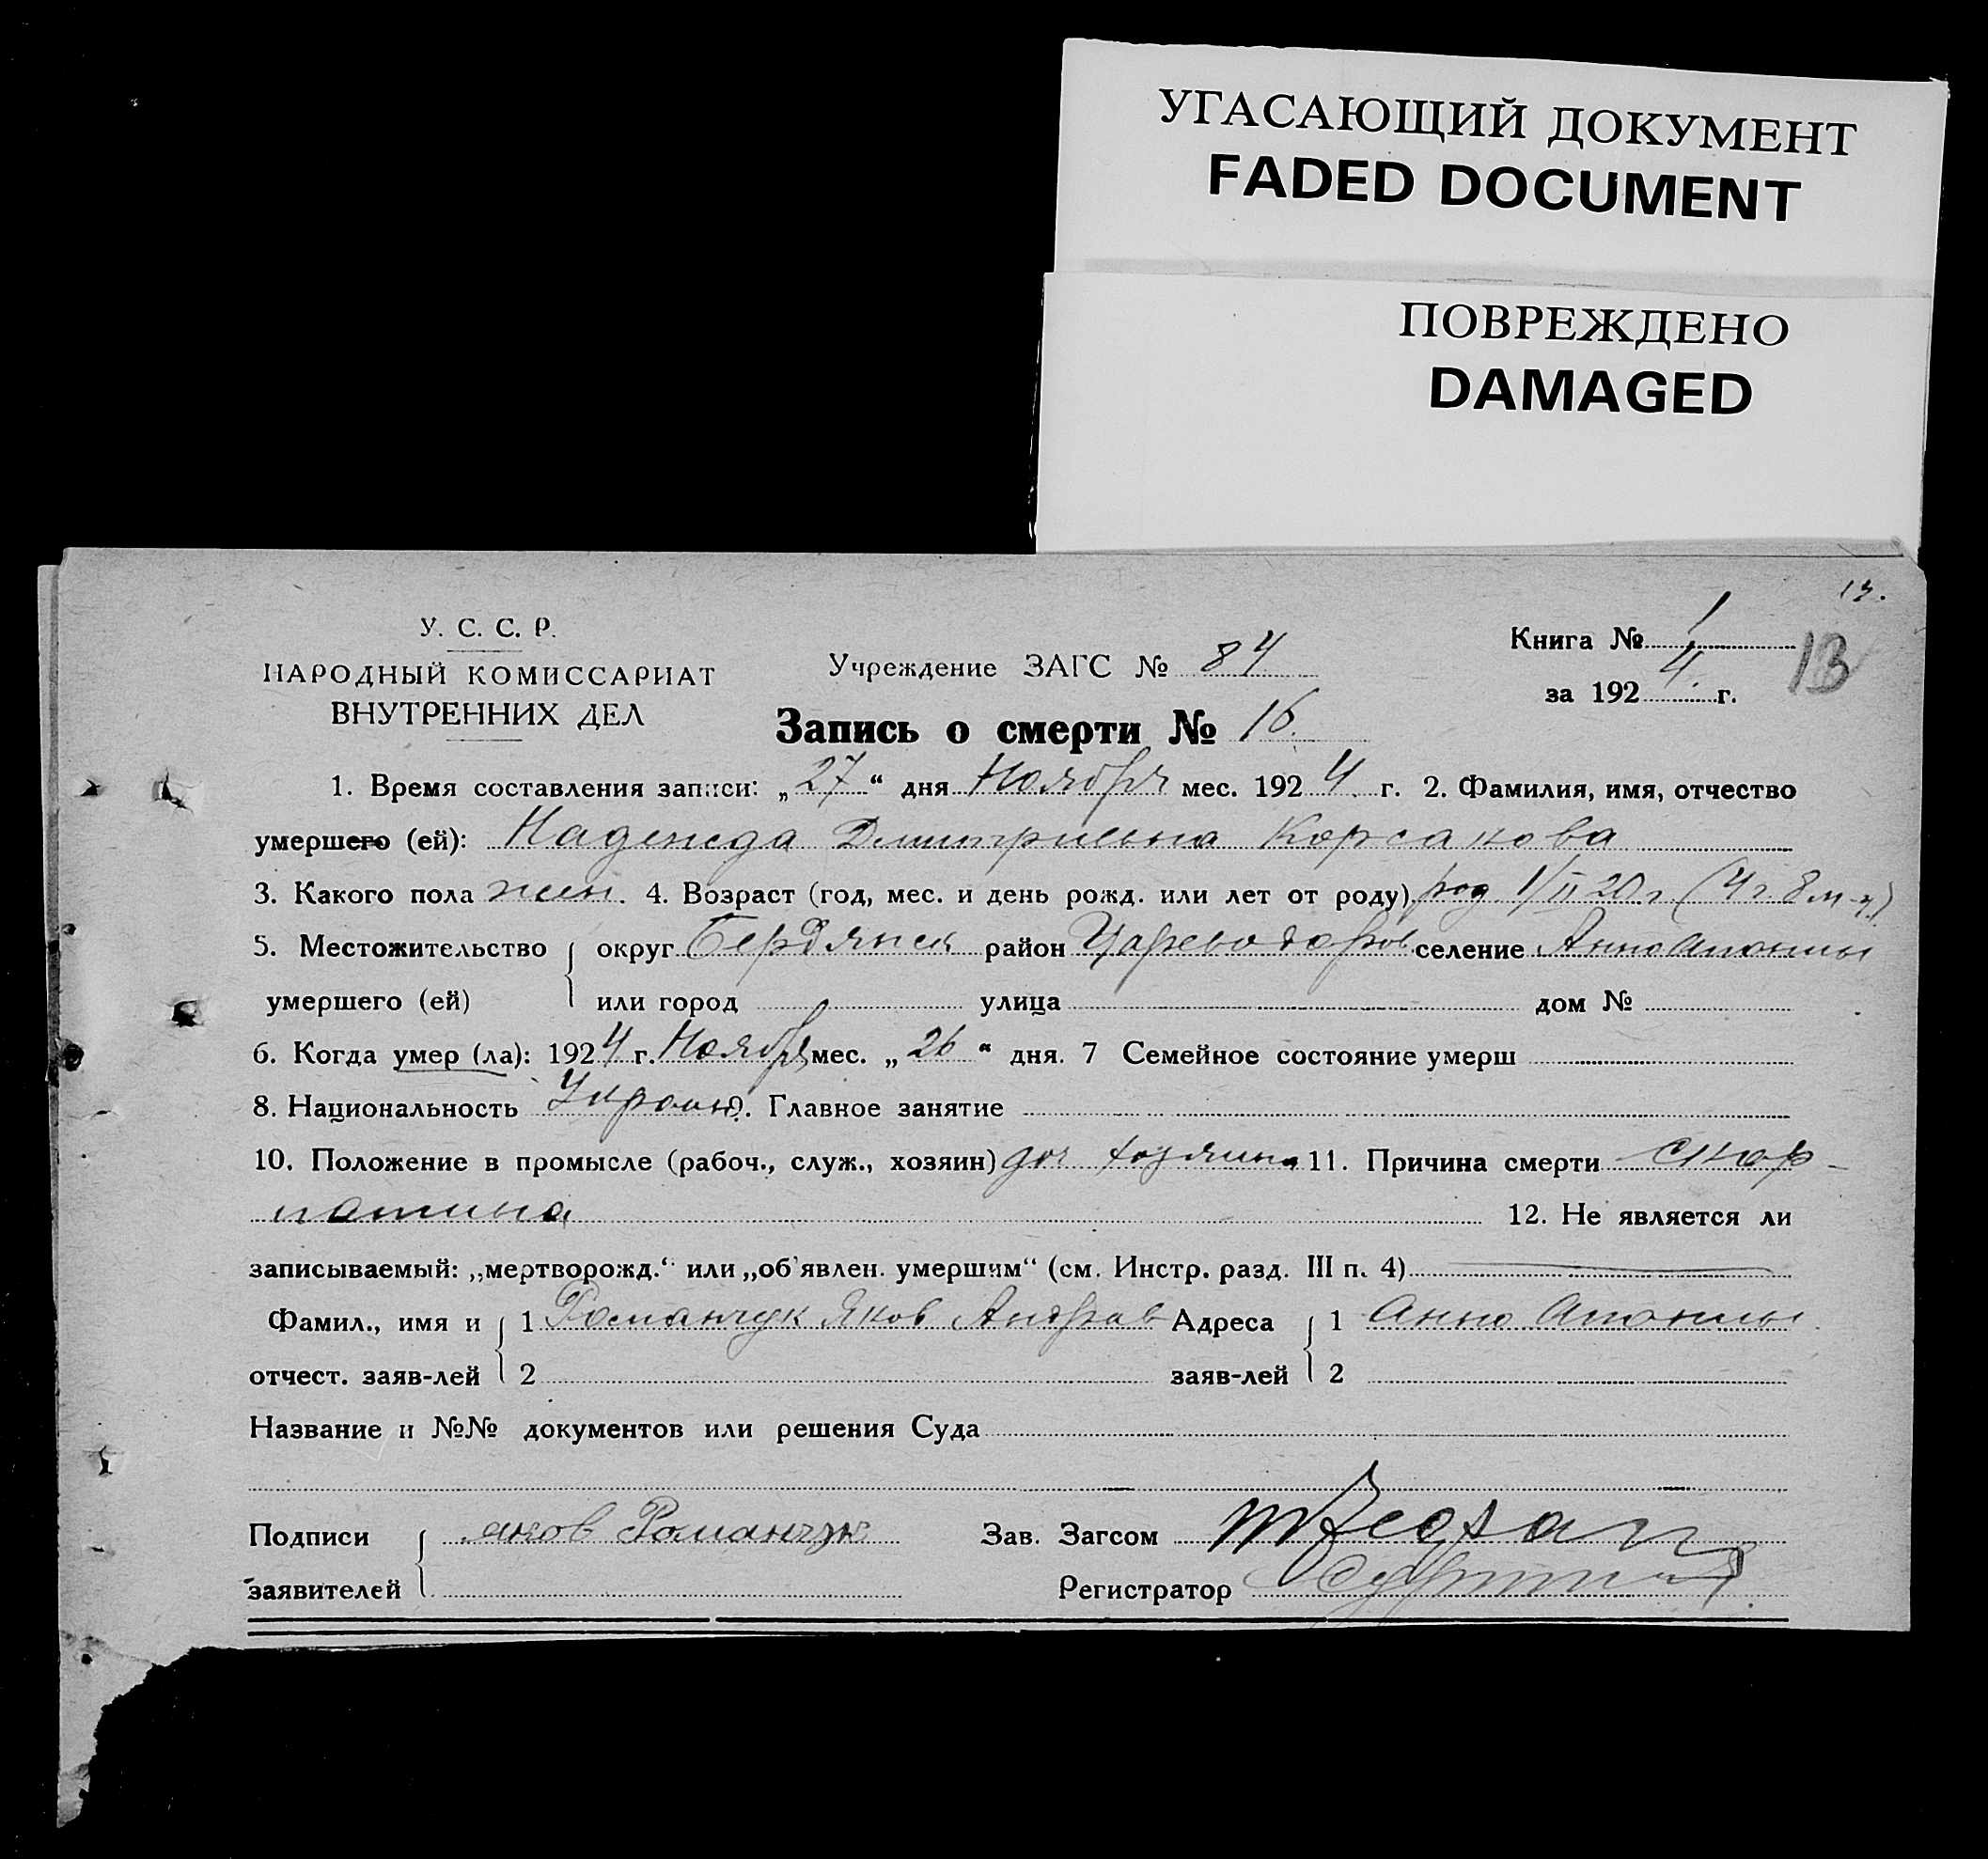 УГАСАЮЩИЙ ДОКУМЕНТ
FADED DOCUMENT
ПОВРЕЖДЕНО
DAMAGED
13.
У. С. С. Р.
НАРОДНЫЙ КОМИССАРИАТ
ВНУТРЕННИХ ДЕЛ
Учреждение ЗАГС № 84
Книга № 1
за 1924. г.
13
Запись о смерти № 16.
1. Время составления записи: „27“ дня Ноября мес. 1924 г. 2. Фамилия, имя, отчество
умершего (ей): Надежда Дмитриевна Корсакова
3. Какого пола жен. 4. Возраст (год, мес. и день рожд. или лет от роду) род 1/II 20 г (4 г. 8 м-ц)
5. Местожительство округ Бердянск район Цареводаров селение Анно
умершего (ей) или город улица дом №
6. Когда умер (ла): 1924 г. Ноября мес. „26“ дня. 7 Семейное состояние умерш
8. Национальность 9. Главное занятие
10. Положение в промысле (рабоч., служ., хозяин) доч хозяина 11. Причина смерти скар-
латина 12. Не является ли
записываемый: „мертворожд.“ или „об'явлен. умершим“ (см. Инстр. разд. III п. 4)
Фамил., имя и 1 Романчук Яков Андреев Адреса 1 Анно
отчест. заяв-лей 2 заяв-лей 2
Название и №№ документов или решения Суда
Подписи яков Романчук Зав. Загсом
заявителей Регистратор